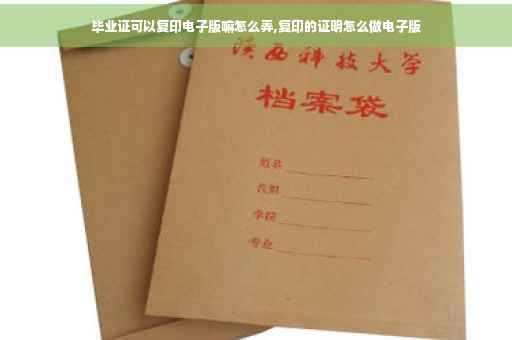 毕业证可以复印电子版嘛怎么弄,复印的证明怎么做电子版
陕西科技大学
档案袋
姓名
教职
学院
专业